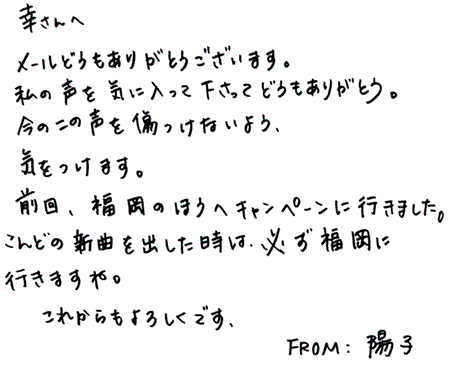 幸さんへ
メールどうもありがとうございます。
私の声を気に入って下さってどうもありがとう。
今のこの声を傷つけないよう、
気をつけます。
前回、福岡のほうへキャンペーンに行きました。
こんどの新曲を出した時は、必ず福岡に
行きますね。
これからもよろしくです、
FROM: 陽子